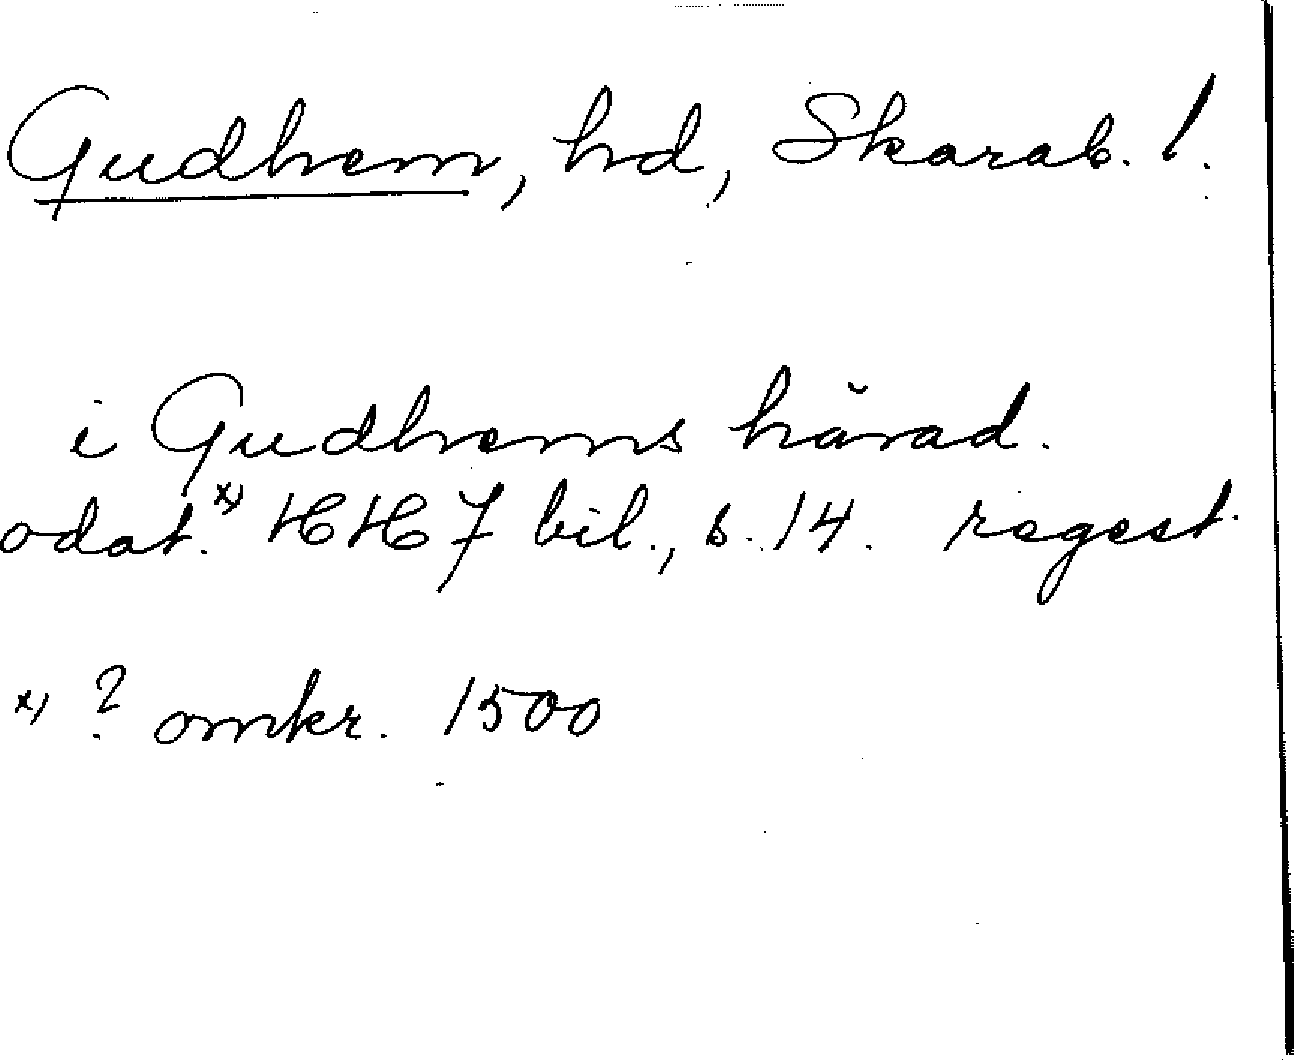 Gudhem, hd, Skarab. l.
i Gudhems härad.
odat. x) HH 7 bil., s. 14. regest.
x) ? omkr. 1500